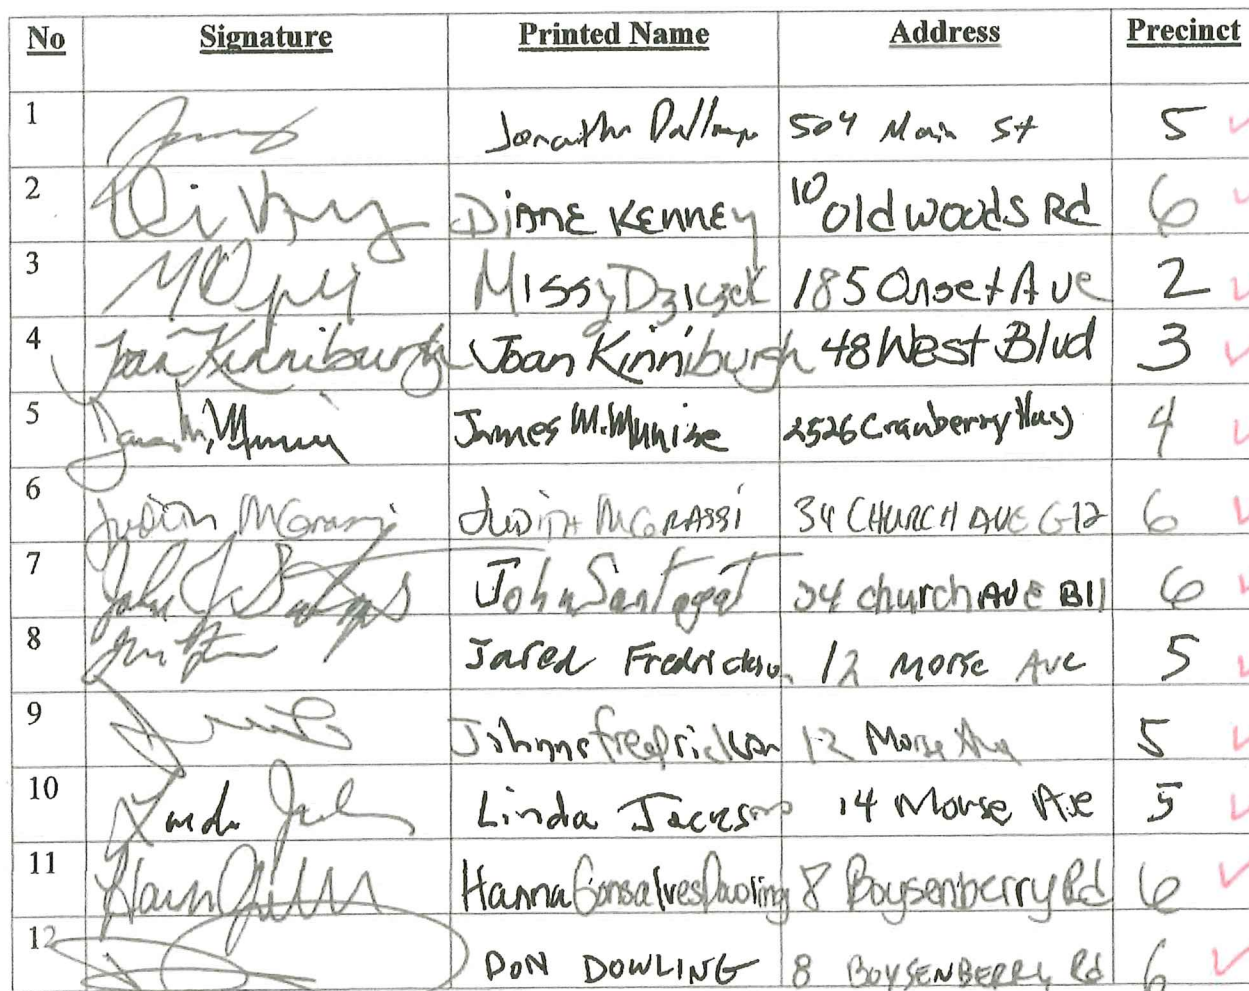 No Signature Printed Name Address Precinct
1 504 Main St 5
2 Diane Kenney 10 Old Woods Rd 6
3 Missy Dziczek 185 Onset Ave 2
4 Joan Kinniburgh Joan Kinniburgh 48 West Blvd 3
5 James M. Munise 2526 Cranberry Hwy 4
6 Judith McGrassi Judith McGrassi 34 CHURCH AVE G-12 6
7 John Santagat 34 church AVE B11 6
8 Jared Fredrickson 12 Morse Ave 5
9 Fredrickson 12 Morse 5
10 Linda Jackson 14 Morse Ave 5
11 Hanna Gonsalves Dowling 8 Boysenberry Rd 6
12 DON DOWLING 8 BOYSENBERRY Rd 6